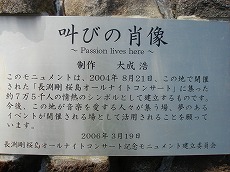 叫びの肖像
～ Passion lives here ～
制作　大成 浩
このモニュメントは、2004年 8月21日、この地で開催
された「長渕剛 桜島オールナイトコンサート」に集った
約7万5千人の情熱のシンボルとして建立するものです。
今後、この地が音楽を愛する人々が集う場、夢のある
イベントが開催される場として活用されることを願って
います。
2006年 3月19日
長渕剛 桜島オールナイトコンサート記念モニュメント建立委員会